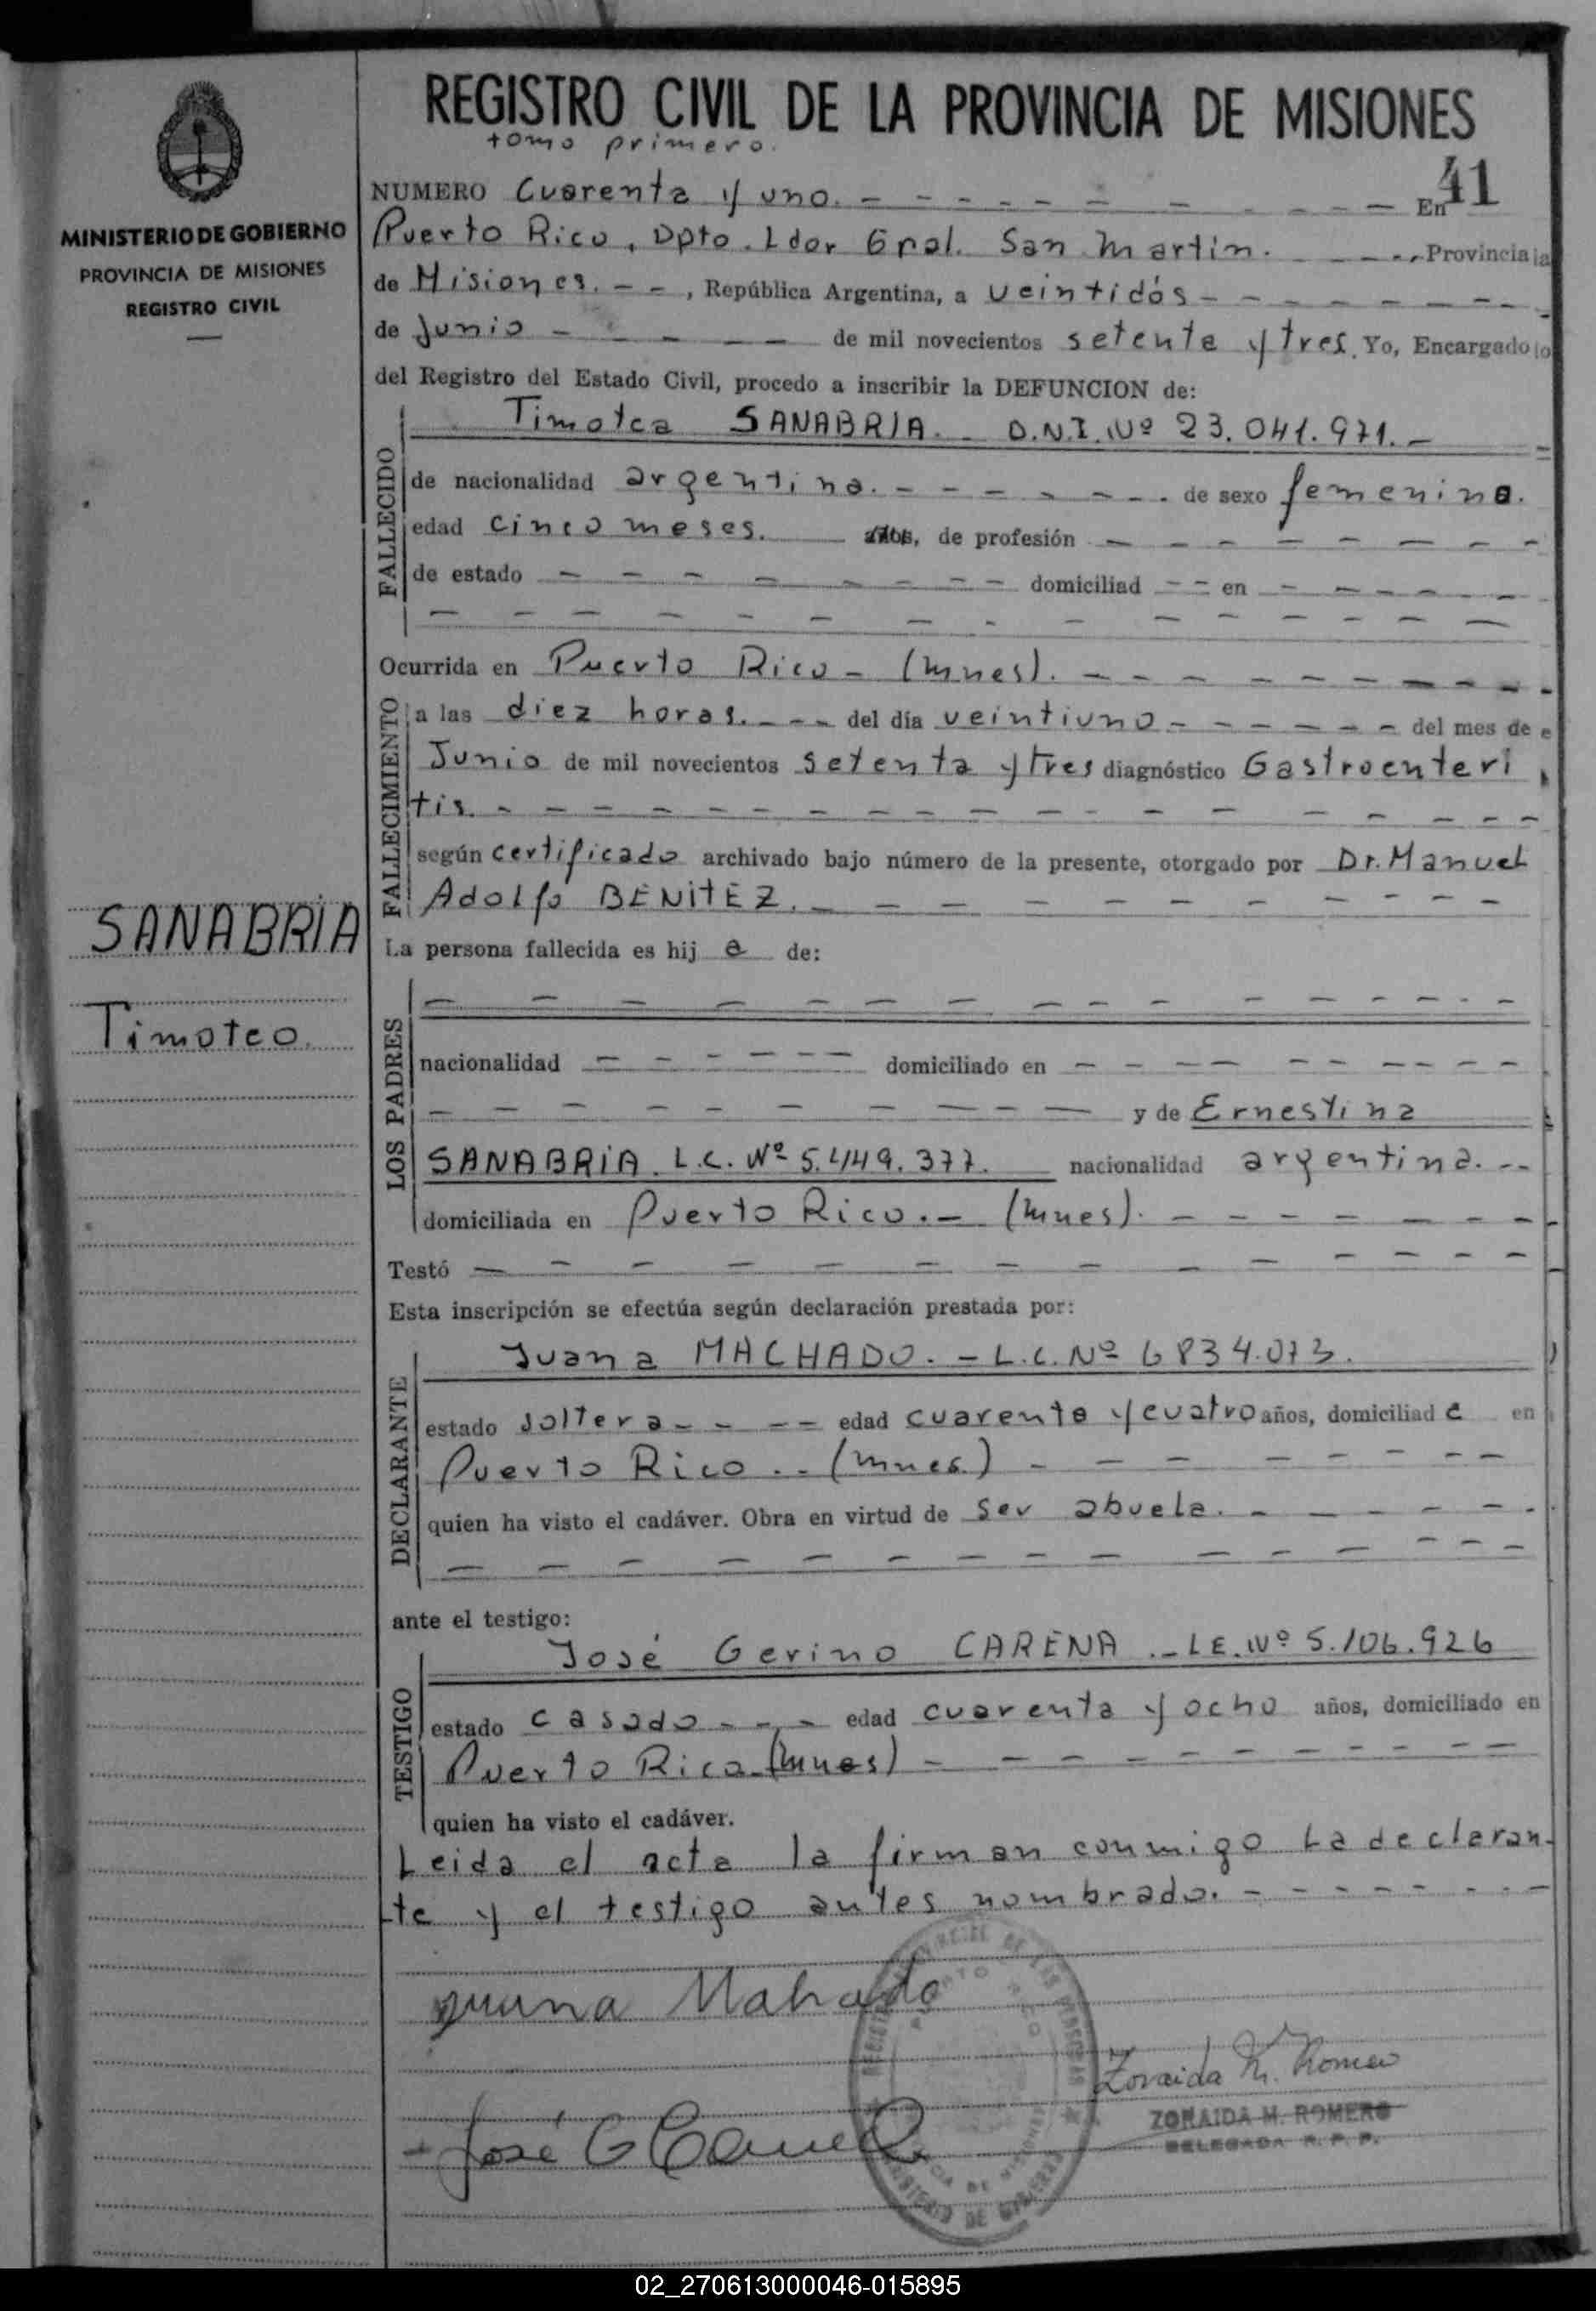 REGISTRO CIVIL DE LA PROVINCIA DE MISIONES
tomo primero.
MINISTERIO DE GOBIERNO
PROVINCIA DE MISIONES
REGISTRO CIVIL
NUMERO Cuarenta y uno. En 41
Puerto Rico, Dpto. Ldor Gral. San Martin. Provincia
de Misiones. - -, República Argentina, a veintidós
de Junio de mil novecientos setenta y tres. Yo, Encargado
del Registro del Estado Civil, procedo a inscribir la DEFUNCION de:
FALLECIDO
Timotea SANABRIA. - D.N.I. Nº 23.041.971. -
de nacionalidad argentina. de sexo femenino.
edad cinco meses. años, de profesión
de estado domiciliad en
Ocurrida en Puerto Rico - (Mnes).
FALLECIMIENTO
a las diez horas. del día veintiuno del mes de
Junio de mil novecientos setenta y tres diagnóstico Gastroenteri
tis.
según certificado archivado bajo número de la presente, otorgado por Dr. Manuel
Adolfo BENITEZ.
SANABRIA
Timoteo.
La persona fallecida es hij a de:
LOS PADRES
nacionalidad domiciliado en
y de Ernestina
SANABRIA. L.C. Nº 5.449.377. nacionalidad argentina.
domiciliada en Puerto Rico. - (Mnes).
Testó
Esta inscripción se efectúa según declaración prestada por:
DECLARANTE
Juana MACHADO. - L.C. Nº 6834.073.
estado soltera edad cuarenta y cuatro años, domiciliad a en
Puerto Rico. - (Mnes.)
quien ha visto el cadáver. Obra en virtud de ser abuela.
ante el testigo:
TESTIGO
José Gerino CARENA. - L.E. Nº 5.106.926
estado casado edad cuarenta y ocho años, domiciliado en
Puerto Rico - (Mnes)
quien ha visto el cadáver.
Leida el acta la firman conmigo La declaran-
te y el testigo antes nombrado.
Juana Mahado
Zoraida M. Romero
ZORAIDA M. ROMERO
DELEGADA R. P. P.
José G Carena
PUERTO RICO
02_270613000046-015895